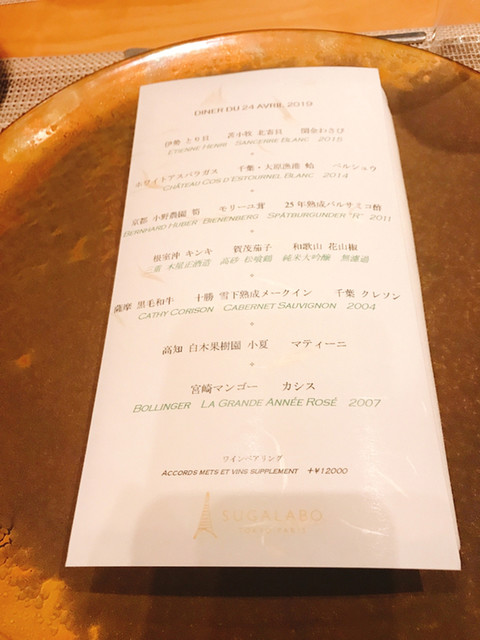 DINER DU 24 AVRIL 2019
伊勢 とり貝　苫小牧 北寄貝　関金わさび
ETIENNE HENRI SANCERRE BLANC 2015
ホワイトアスパラガス　千葉・大原漁港 鮑　ペルシュウ
CHÂTEAU COS D'ESTOURNEL BLANC 2014
京都 小野農園 筍　モリーユ茸　25年熟成バルサミコ酢
BERNHARD HUBER BIENENBERG SPÄTBURGUNDER "R" 2011
根室沖 キンキ　賀茂茄子　和歌山 花山椒
三重 木屋正酒造 高砂 松喰鶴 純米大吟醸 無濾過
薩摩 黒毛和牛　十勝 雪下熟成メークイン　千葉 クレソン
CATHY CORISON CABERNET SAUVIGNON 2004
高知 白木果樹園 小夏　マティーニ
宮崎マンゴー　カシス
BOLLINGER LA GRANDE ANNÉE ROSÉ 2007
ワインペアリング
ACCORDS METS ET VINS SUPPLEMENT +¥12000
SUGALABO